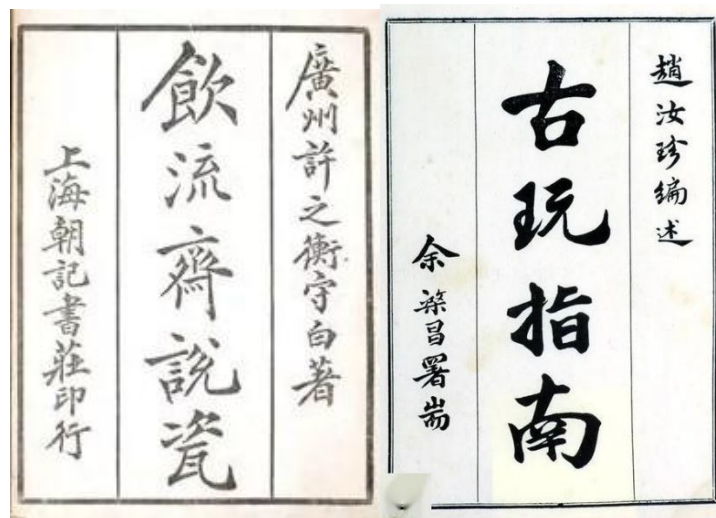 廣州許之衡守白著
飲流齋說瓷
上海朝記書莊印行
趙汝珍編述
古玩指南
余棨昌署耑